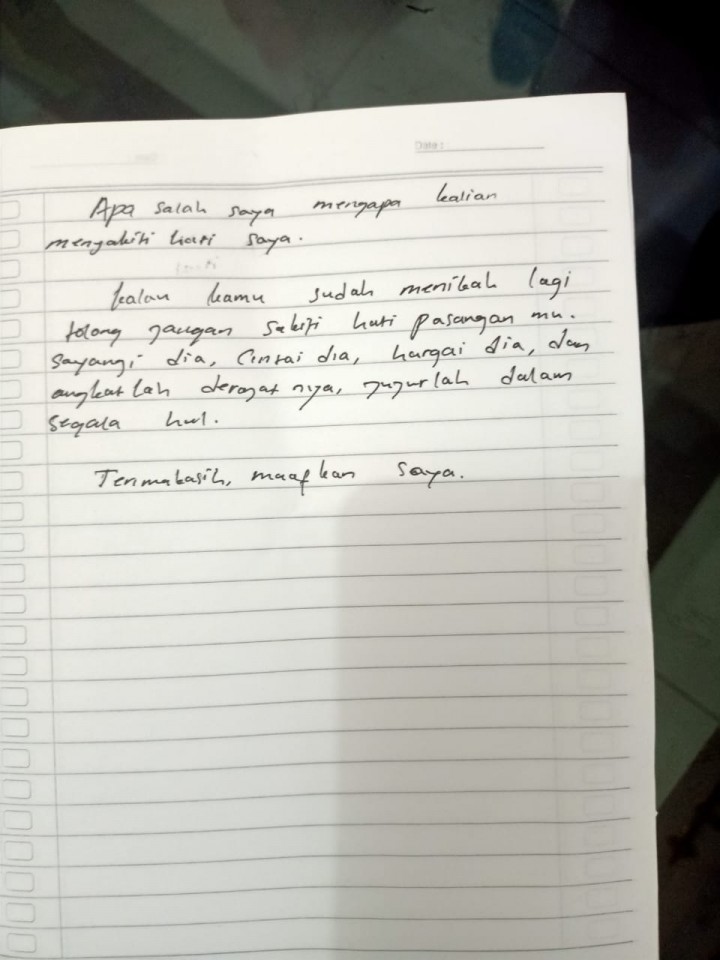 Date:
Apa salah saya mengapa kalian
menyakiti hati saya.
kalau kamu sudah menikah lagi
tolong jangan sakiti hati pasangan mu.
sayangi dia, Cintai dia, hargai dia, dan
angkat lah derajat nya, jujurlah dalam
segala hal.
Terimakasih, maafkan saya.